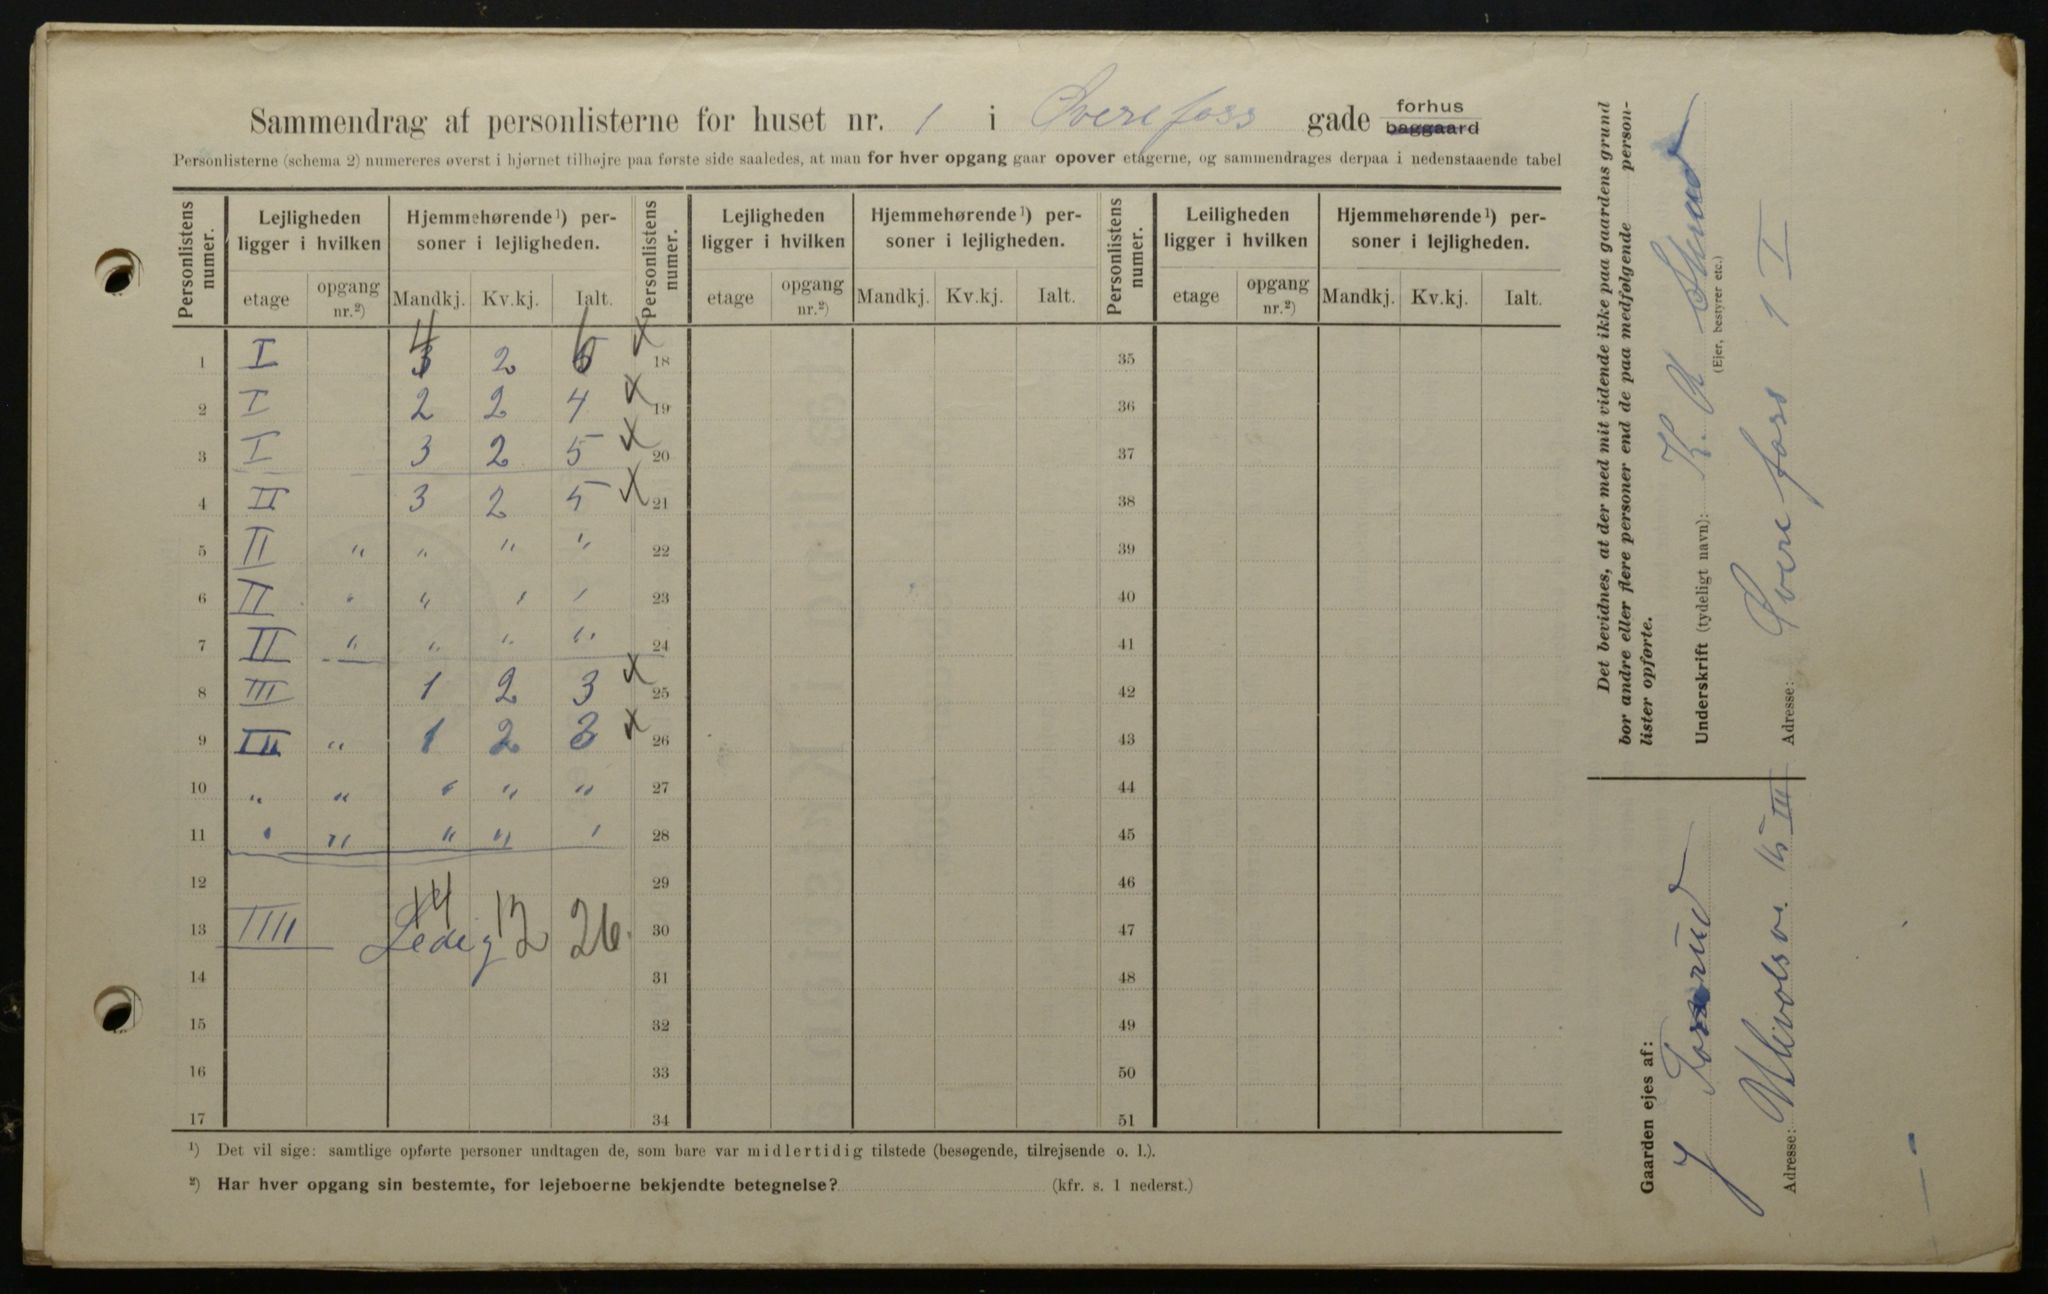 Sammendrag af personlisterne for huset nr. 1 i Øvre foss gade forhus baggaard
Personlisterne (schema 2) numereres øverst i hjørnet tilhøjre paa første side saaledes, at man for hver opgang gaar opover etagerne, og sammendrages derpaa i nedenstaaende tabel
Personlistens numer. Lejligheden ligger i hvilken Hjemmehørende¹) personer i lejligheden. Personlistens numer. Lejligheden ligger i hvilken Hjemmehørende¹) personer i lejligheden. Personlistens numer. Leiligheden ligger i hvilken Hjemmehørende¹) personer i lejligheden.
etage opgang nr.²) Mandkj. Kv.kj. Ialt. etage opgang nr.²) Mandkj. Kv.kj. Ialt. etage opgang nr.²) Mandkj. Kv.kj. Ialt.
4 6
1 I 3 2 5 x 18 35
2 I 2 2 4 x 19 36
3 I 3 2 5 x 20 37
4 II 3 2 5 x 21 38
5 II " " " " 22 39
6 II " " " " 23 40
7 II " " " " 24 41
8 III 1 2 3 x 25 42
9 III " 1 2 3 x 26 43
10 " " " " " 27 44
11 " " " " " 28 45
12 29 46
13 IIII Ledig 14 12 26. 30 47
14 31 48
15 32 49
16 33 50
17 34 51
¹) Det vil sige: samtlige opførte personer undtagen de, som bare var midlertidig tilstede (besøgende, tilrejsende o. l.).
²) Har hver opgang sin bestemte, for lejeboerne bekjendte betegnelse? (kfr. s. 1 nederst.)
Det bevidnes, at der med mit vidende ikke paa gaardens grund
bor andre eller flere personer end de paa medfølgende personlister opførte.
Underskrift (tydeligt navn): K. A
(Ejer, bestyrer etc.)
Adresse: Øvre foss 1 I
Gaarden ejes af:
J
Adresse: 15 III